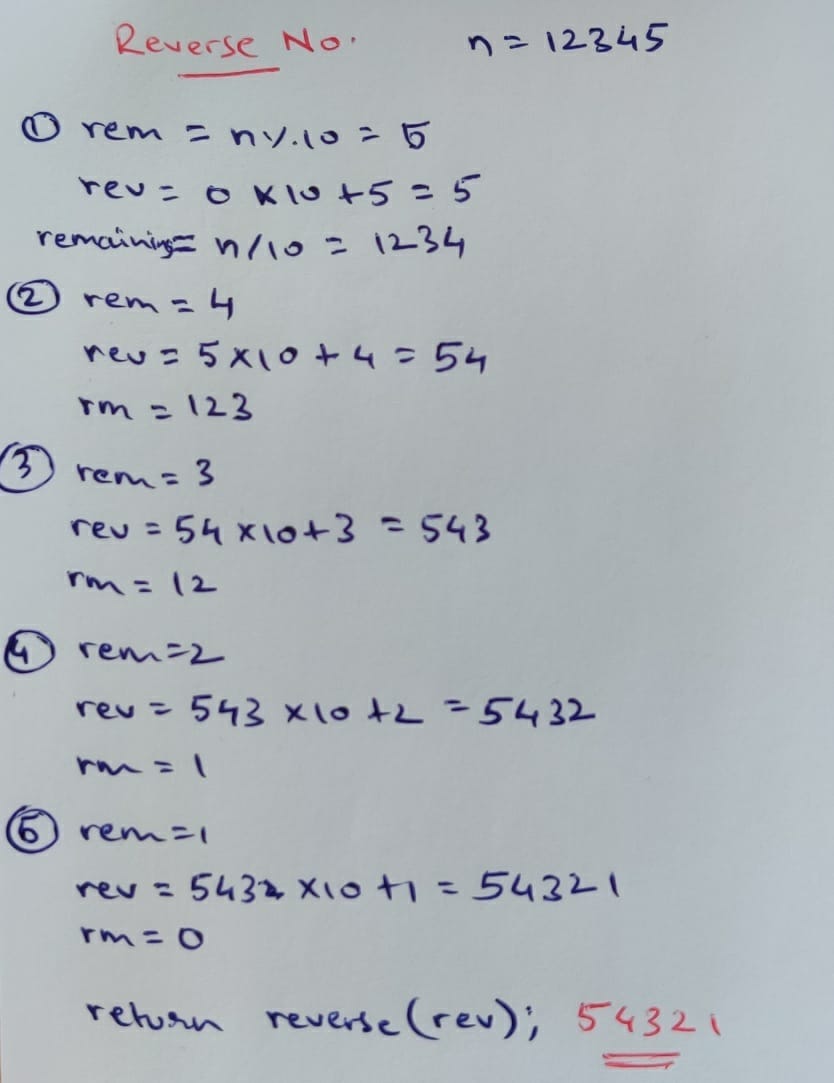 Reverse No. n = 12345
① rem = n%10 = 5
rev = 0 x 10 + 5 = 5
remaining = n/10 = 1234
② rem = 4
rev = 5 x 10 + 4 = 54
rm = 123
③ rem = 3
rev = 54 x 10 + 3 = 543
rm = 12
④ rem = 2
rev = 543 x 10 + 2 = 5432
rm = 1
⑤ rem = 1
rev = 5432 x 10 + 1 = 54321
rm = 0
return reverse(rev); 54321